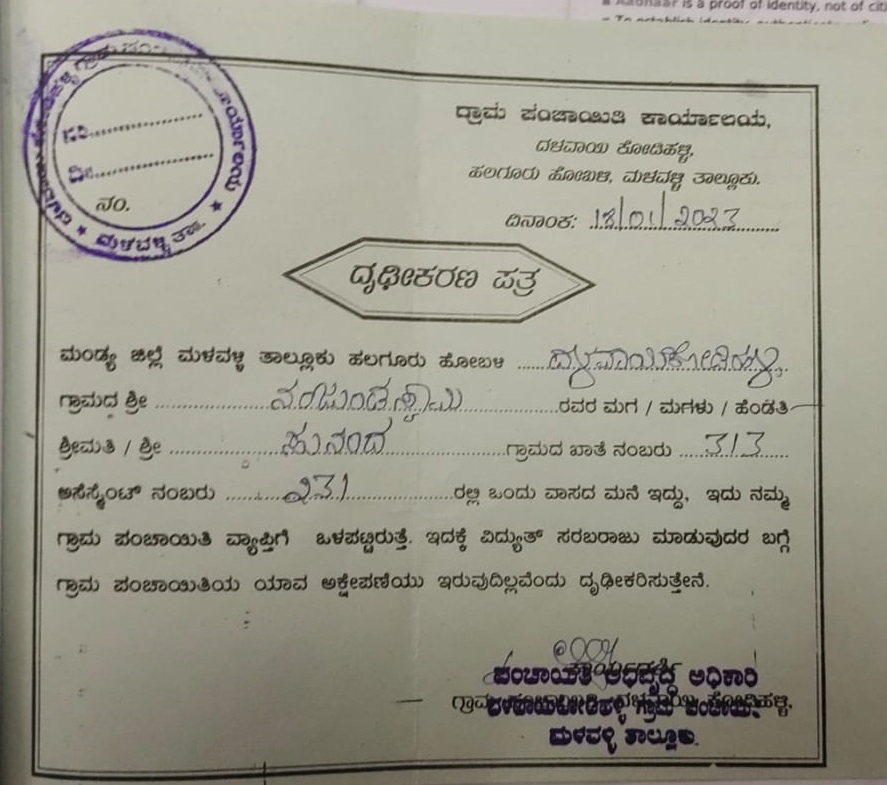 Aadhaar is a proof of identity, not of citi
To establish identity, authenticate
ಗ್ರಾಮ ಪಂಚಾಯಿತಿ ಕಾರ್ಯಾಲಯ,
ದಳವಾಯಿ ಕೋಡಿಹಳ್ಳಿ,
ಹಲಗೂರು ಹೋಬಳಿ, ಮಳವಳ್ಳಿ ತಾಲ್ಲೂಕು.
ನಂ.
ಮಳವಳ್ಳಿ ತಾ.
ದಿನಾಂಕ: 18/01/2023
ದೃಢೀಕರಣ ಪತ್ರ
ಮಂಡ್ಯ ಜಿಲ್ಲೆ ಮಳವಳ್ಳಿ ತಾಲ್ಲೂಕು ಹಲಗೂರು ಹೋಬಳಿ ......ದಳವಾಯಿಕೋಡಿಹಳ್ಳಿ
ಗ್ರಾಮದ ಶ್ರೀ ..........ನಂಜುಂಡಸ್ವಾಮಿ..........ರವರ ಮಗ / ಮಗಳು / ಹೆಂಡತಿ
ಶ್ರೀಮತಿ / ಶ್ರೀ ..........ಸುನಂದ..........ಗ್ರಾಮದ ಖಾತೆ ನಂಬರು .....313.....
ಅಸೆಸ್ಮೆಂಟ್ ನಂಬರು ........231........ರಲ್ಲಿ ಒಂದು ವಾಸದ ಮನೆ ಇದ್ದು, ಇದು ನಮ್ಮ
ಗ್ರಾಮ ಪಂಚಾಯಿತಿ ವ್ಯಾಪ್ತಿಗೆ ಒಳಪಟ್ಟಿರುತ್ತೆ. ಇದಕ್ಕೆ ವಿದ್ಯುತ್ ಸರಬರಾಜು ಮಾಡುವುದರ ಬಗ್ಗೆ
ಗ್ರಾಮ ಪಂಚಾಯಿತಿಯ ಯಾವ ಅಕ್ಷೇಪಣೆಯು ಇರುವುದಿಲ್ಲವೆಂದು ದೃಢೀಕರಿಸುತ್ತೇನೆ.
ಪಂಚಾಯತಿ ಅಭಿವೃದ್ಧಿ ಅಧಿಕಾರಿ
ದಳವಾಯಿಕೋಡಿಹಳ್ಳಿ ಗ್ರಾಮ ಪಂಚಾಯಿತಿ
ಮಳವಳ್ಳಿ ತಾಲ್ಲೂಕು.